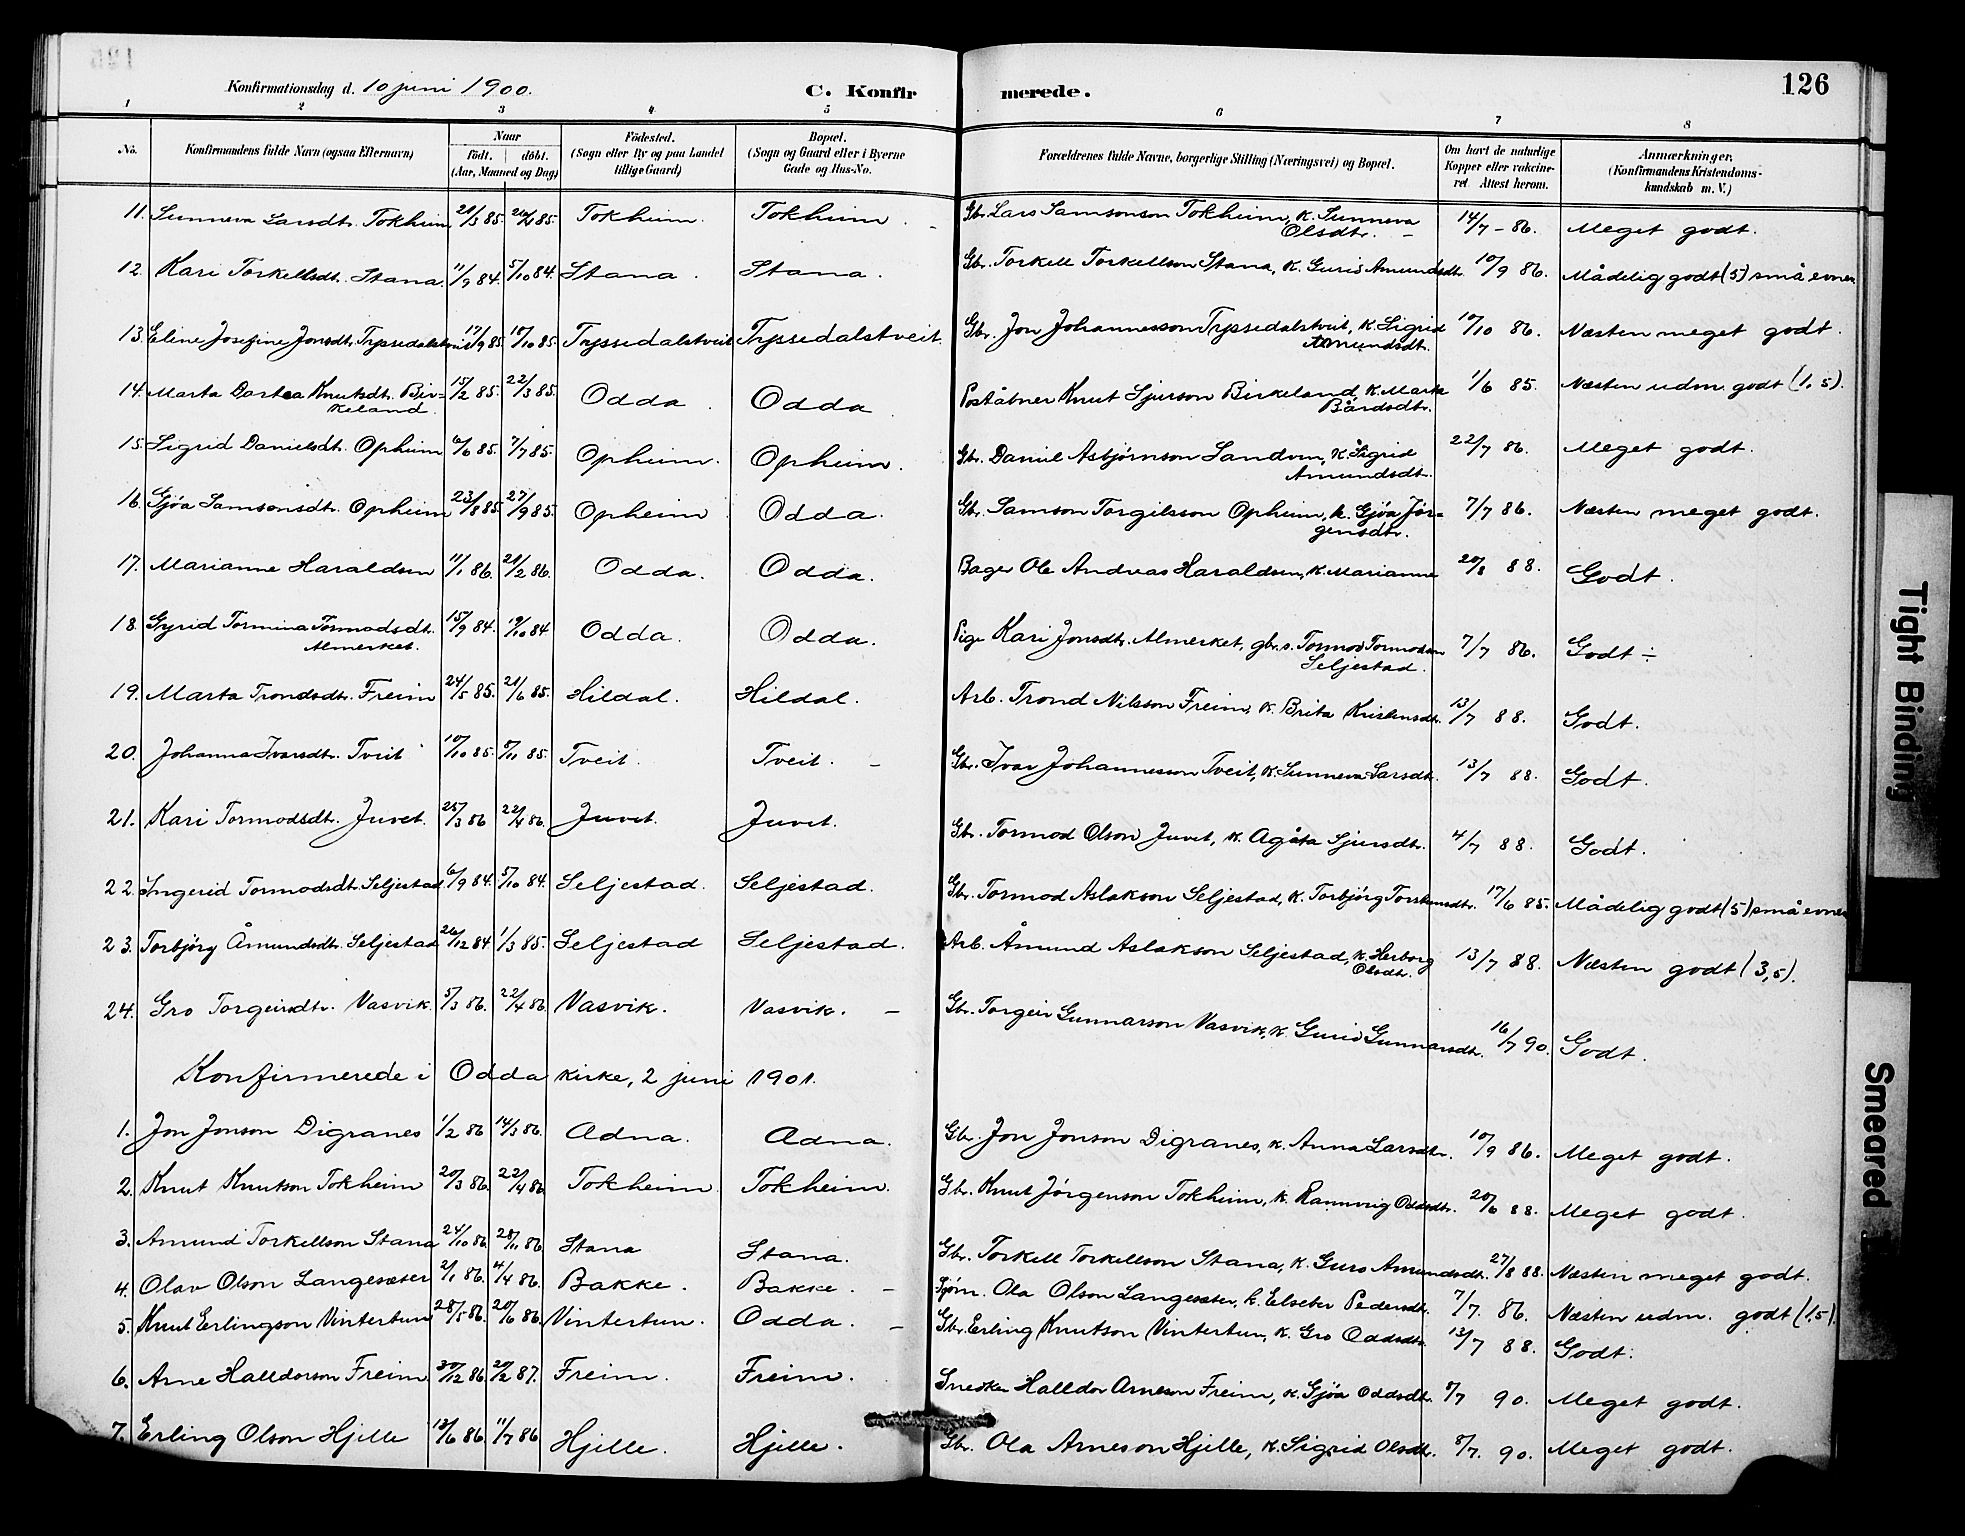 Konfirmationsdag d. 10 juni 1900. C. Konfirmerede. 126
1 2 3 4 5 6 7 8
No. Konfirmandens fulde Navn (ogsaa Efternavn) Naar födt. döbt. (Aar, Maaned og Dag) Födested. (Sogn eller By og paa Landet tillige Gaard) Bopæl. (Sogn og Gaard eller i Byerne Gade og Hus-No. Forældrenes fulde Navne, borgerlige Stilling (Næringsvei) og Bopæl. Om havt de naturlige Kopper eller vakcineret Attest herom. Anmærkninger. (Konfirmandens Kristendomskundskab m. V.)
11. Sunneva Larsdtr. Tokheim 85. 85. Tokheim. Tokheim. Gbr. Lars Samsonson Tokheim, k. Sunneva Olsdtr. 14/7 - 86. Meget godt.
12. Kari Torkellsdt. Stana 11/9 84. 5/10 84. Stana. Stana. Gbr. Torkell Torkellson Stana, k. Guris Amundsdt. 10/9 86. Mådelig godt (5) små evner
13. Eline Josefine Jonsdt. Tryssedalstveit 17/9 85. 18/10 85. Tryssedalstveit Tryssedalstveit. Gbr. Jon Johannesson Tryssedalstveit, k. Sigrid Amundsdt. 10/10 86. Næsten meget godt.
14. Marta Dortea Knutsdt. Birkeland. 15/2 85. 22/3 85. Odda. Odda Poståbner Knut Sjurson Birkeland, k. Marta Bårdsdtr. 1/6 85. Næsten udm. godt (1,5).
15. Sigrid Danielsdt. Opheim 6/6 85. 7/7 85. Opheim. Opheim. Gbr. Daniel Asbjørnson Sandven, k. Sigrid Amundsdt. 22/7 86. Meget godt.
16. Gjøa Samsonsdtr. Opheim 23/8 85. 27/9 85. Opheim Odda. Gbr. Samson Torgilsson Opheim, k. Gjøa Jørgensdtr. 7/7 86. Næsten meget godt.
17. Marianne Haraldsen 11/1 86. 21/2 86. Odda. Odda. Bager Ole Andreas Haraldsen, k. Marianne 20/8 88. Godt.
18. Gyrid Tormina Tormodsdt. Almerket. 15/9 84. 19/10 84 Odda. Odda. Pige Kari Jonsdtr. Almerket, gbr.s. Tormod Tormodson Seljestad. 7/7 86. Godt ÷
19. Marta Trondsdt. Freim 24/5 85. 21/6 85. Hildal. Hildal. Arb. Trond Nilsson Freim, k. Brita Kristensdt. 13/7 88. Godt.
20. Johanna Ivarsdtr. Tveit 10/10 85. 85. Tveit. Tveit. - Gbr. Ivar Johannesson Tveit, k. Sunneva Larsdt. 13/7 88. Godt.
21. Kari Tormodsdt. Juvet. 25/3 86 22/4 86. Juvet. Juvet. Gbr. Tormod Olson Juvet, k. Agåta Sjursdt. 4/7 88. Godt.
22. Ingerid Tormodsdt. Seljestad 6/9 84. 5/10 84. Seljestad. Seljestad. Gbr. Tormod Aslakson Seljestad, k. Torbjörg Torsteinsdtr. 17/6 85. Mådelig godt (5) små evner
23. Torbjörg Åmundsdt. Seljestad 26/12 84. 1/3 85. Seljestad Seljestad. Arb. Åmund Aslakson Seljestad, k. Herborg Olsdtr. 13/7 88. Næsten godt (3,5).
24. Gro Torgeirsdtr. Vasvik. 5/3 86. 22/4 86 Vasvik. Vasvik. - Gbr. Torgeir Gunnarson Vasvik, k. Gurid Gunnarsdt. 16/7 90. Godt.
Konfirmerede i Odda kirke, 2 juni 1901.
1. Jon Jonson Digranes 1/2 86 14/3 86. Adna. Adna. Gbr. Jon Jonson Digranes, k. Anna Larsdtr. 10/9 86. Meget godt.
2. Knut Knutson Tokheim 20/3 86. 22/4 86 Tokheim Tokheim. Gbr. Knut Jørgenson Tokheim, k. Rannveig Oddsdtr. 20/6 88. Meget godt.
3. Amund Torkellson Stana 24/10 86. 28/11 86 Stana Stana. Gbr. Torkell Torkellson Stana, k. Guro Amundsdt. 27/8 88. Næsten meget godt.
4. Olav Olson Langesæter 2/1 86. 4/4 86. Bakke. Bakke. - Ola Olson Langesæter, k. Elseber Pedersdt. 7/7. 86. Næsten udm. godt (1,5).
5. Knut Erlingson Vintertun 28/5 86. 20/6 86. Vintertun. Odda. - Gbr. Erling Knutson Vintertun, k. Gro Oddsdtr. 13/7 88. Godt.
6. Arne Halldorson Freim 30/12 86. 20/2 87. Freim. Freim. Snedker Halldor Arneson Freim, k. Gjøa Oddsdt. 8/7 90. Meget godt.
7. Erling Olson Hjelle 13/6 86. 11/7 86 Hjelle. Hjelle. Gbr. Ola Arneson Hjelle, k. Sigrid Olsdt. 8/7. 90. Meget godt.
Tight Binding
Smeared